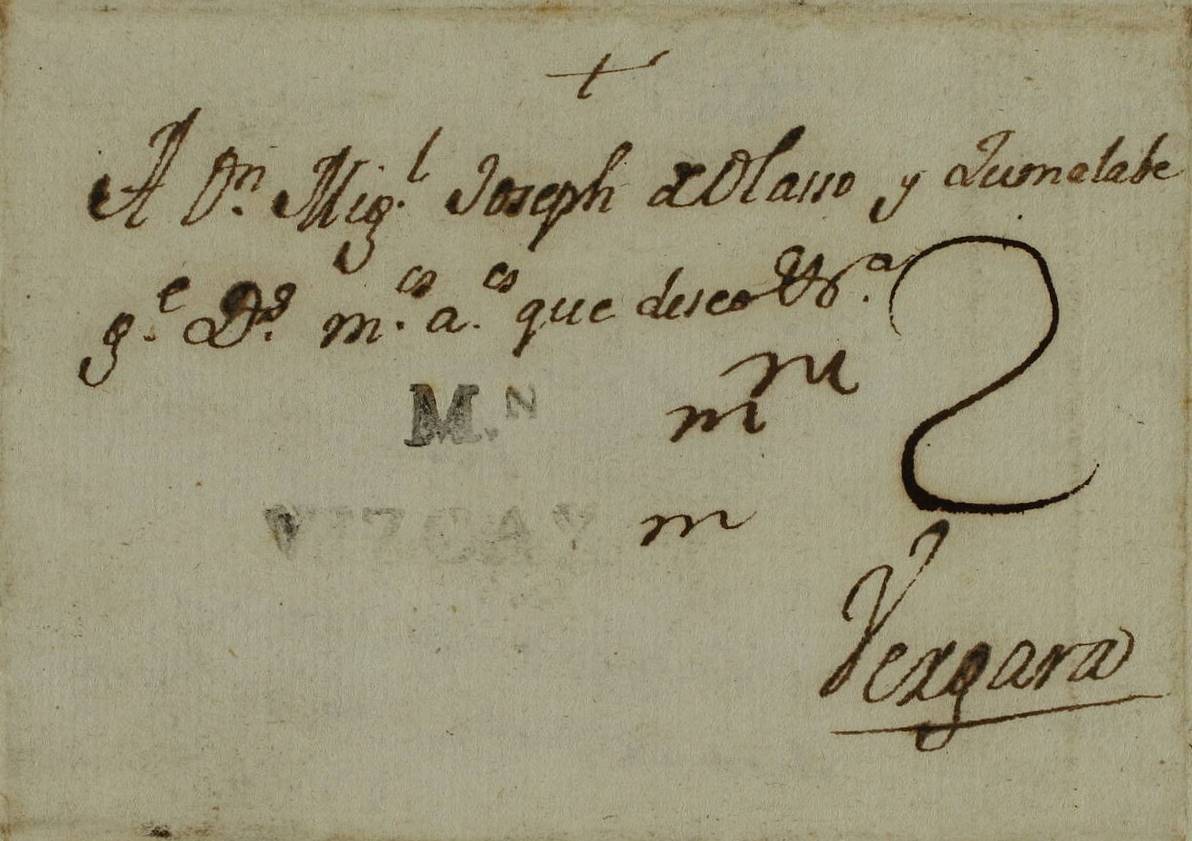 +
A Dn. Mig.l Joseph de Olasso y Zumalabe
g.e D.s m.s a.s que deseo Vx.a
M.N
m m
VIZCAY m
2
Vergara